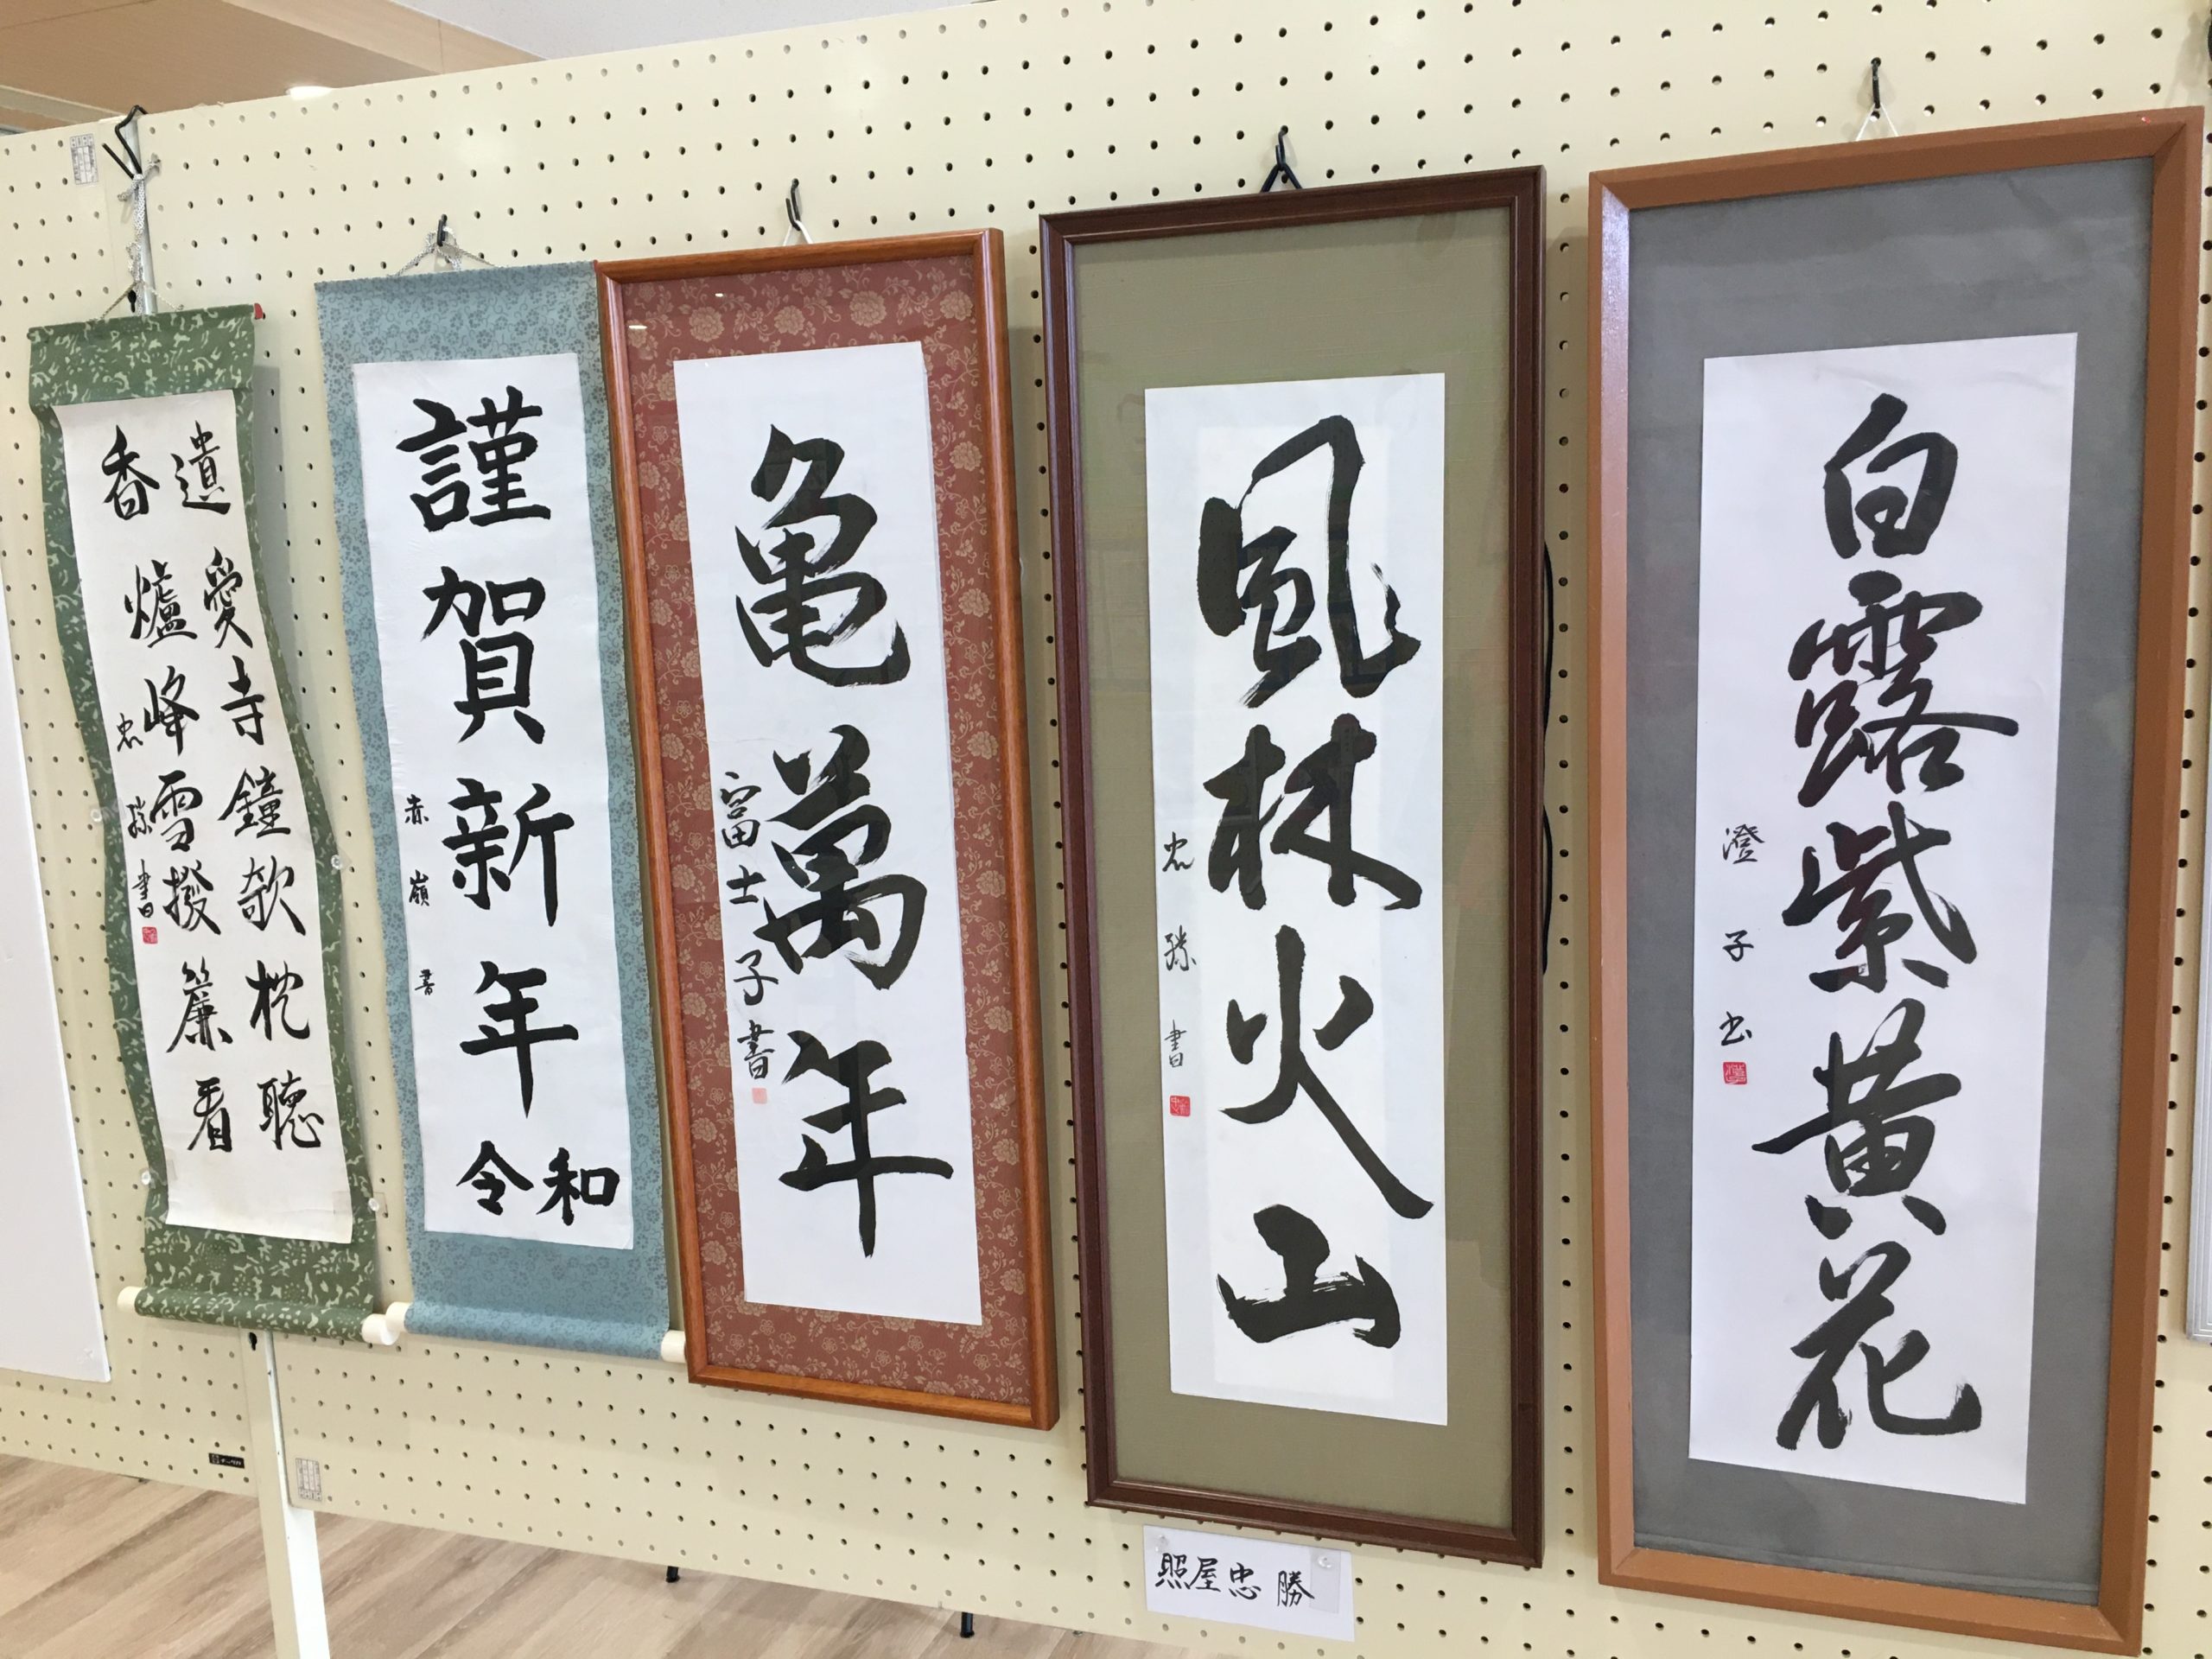 遺愛寺鐘欹枕聴
香爐峰雪撥簾看
忠勝書
謹賀新年
令和
赤嶺書
亀萬年
富士子書
風林火山
忠勝書
照屋忠勝
白露紫黄花
澄子书